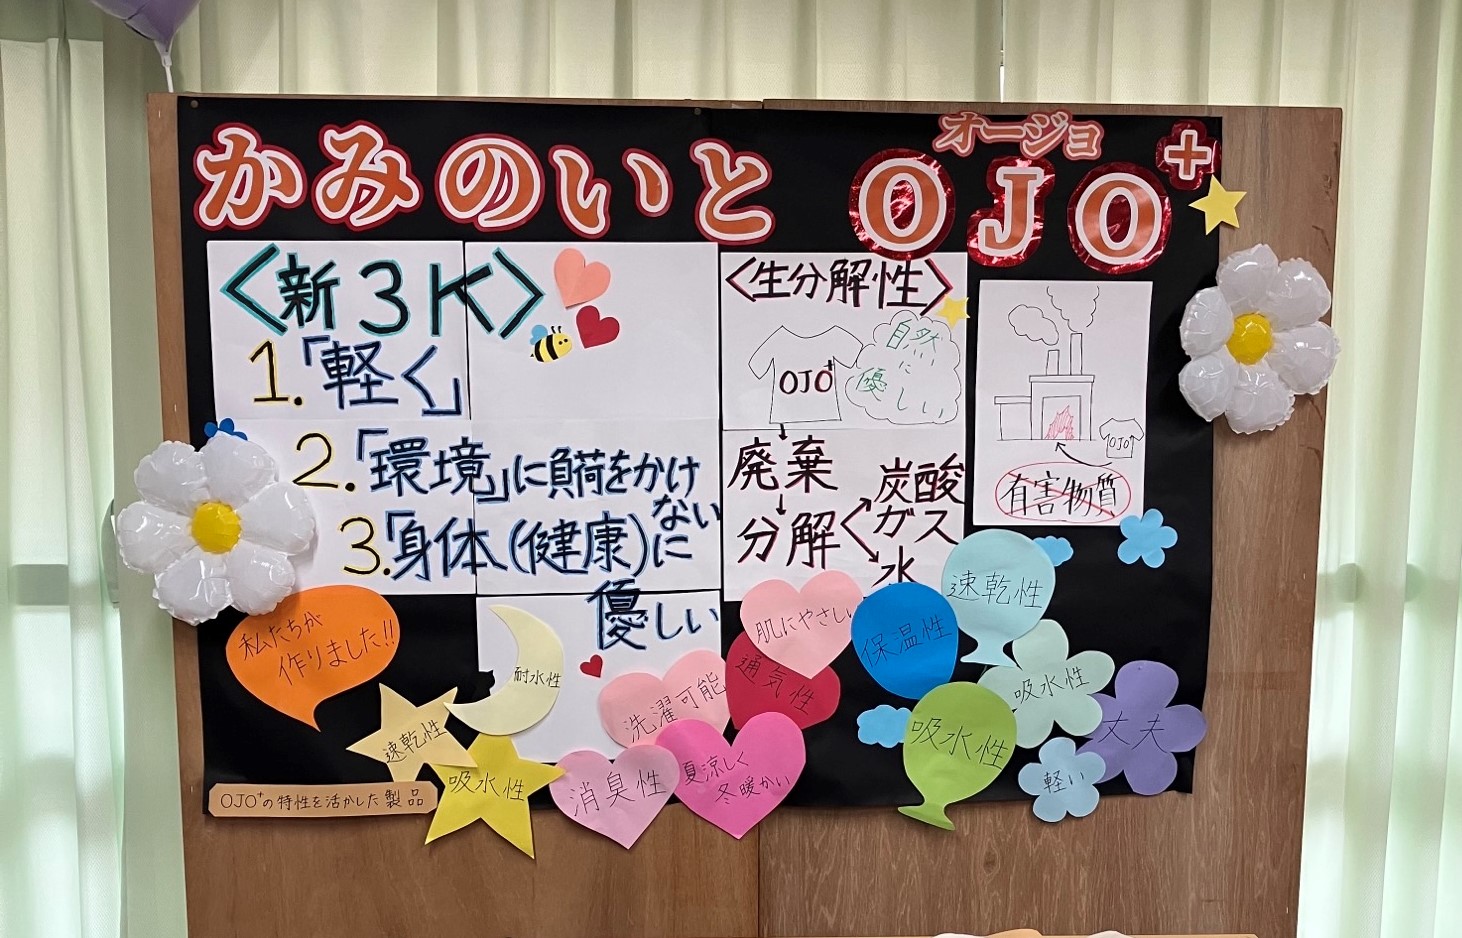 かみのいと
オージョ
OJO+
〈新3K〉
1.「軽く」
2.「環境」に負荷をかけ
ない
3.「身体(健康)に
優しい
〈生分解性〉
OJO+
自然
に
優しい
廃棄
分解
炭酸
ガス
水
OJO+
有害物質
私たちが
作りました!!
速乾性
耐水性
吸水性
OJO+の特性を活かした製品
洗濯可能
消臭性
肌にやさしい
通気性
夏涼しく
冬暖かい
保温性
速乾性
吸水性
吸水性
丈夫
軽い